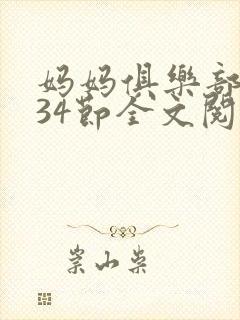 妈妈俱樂部
34節全文閱
崇山柴